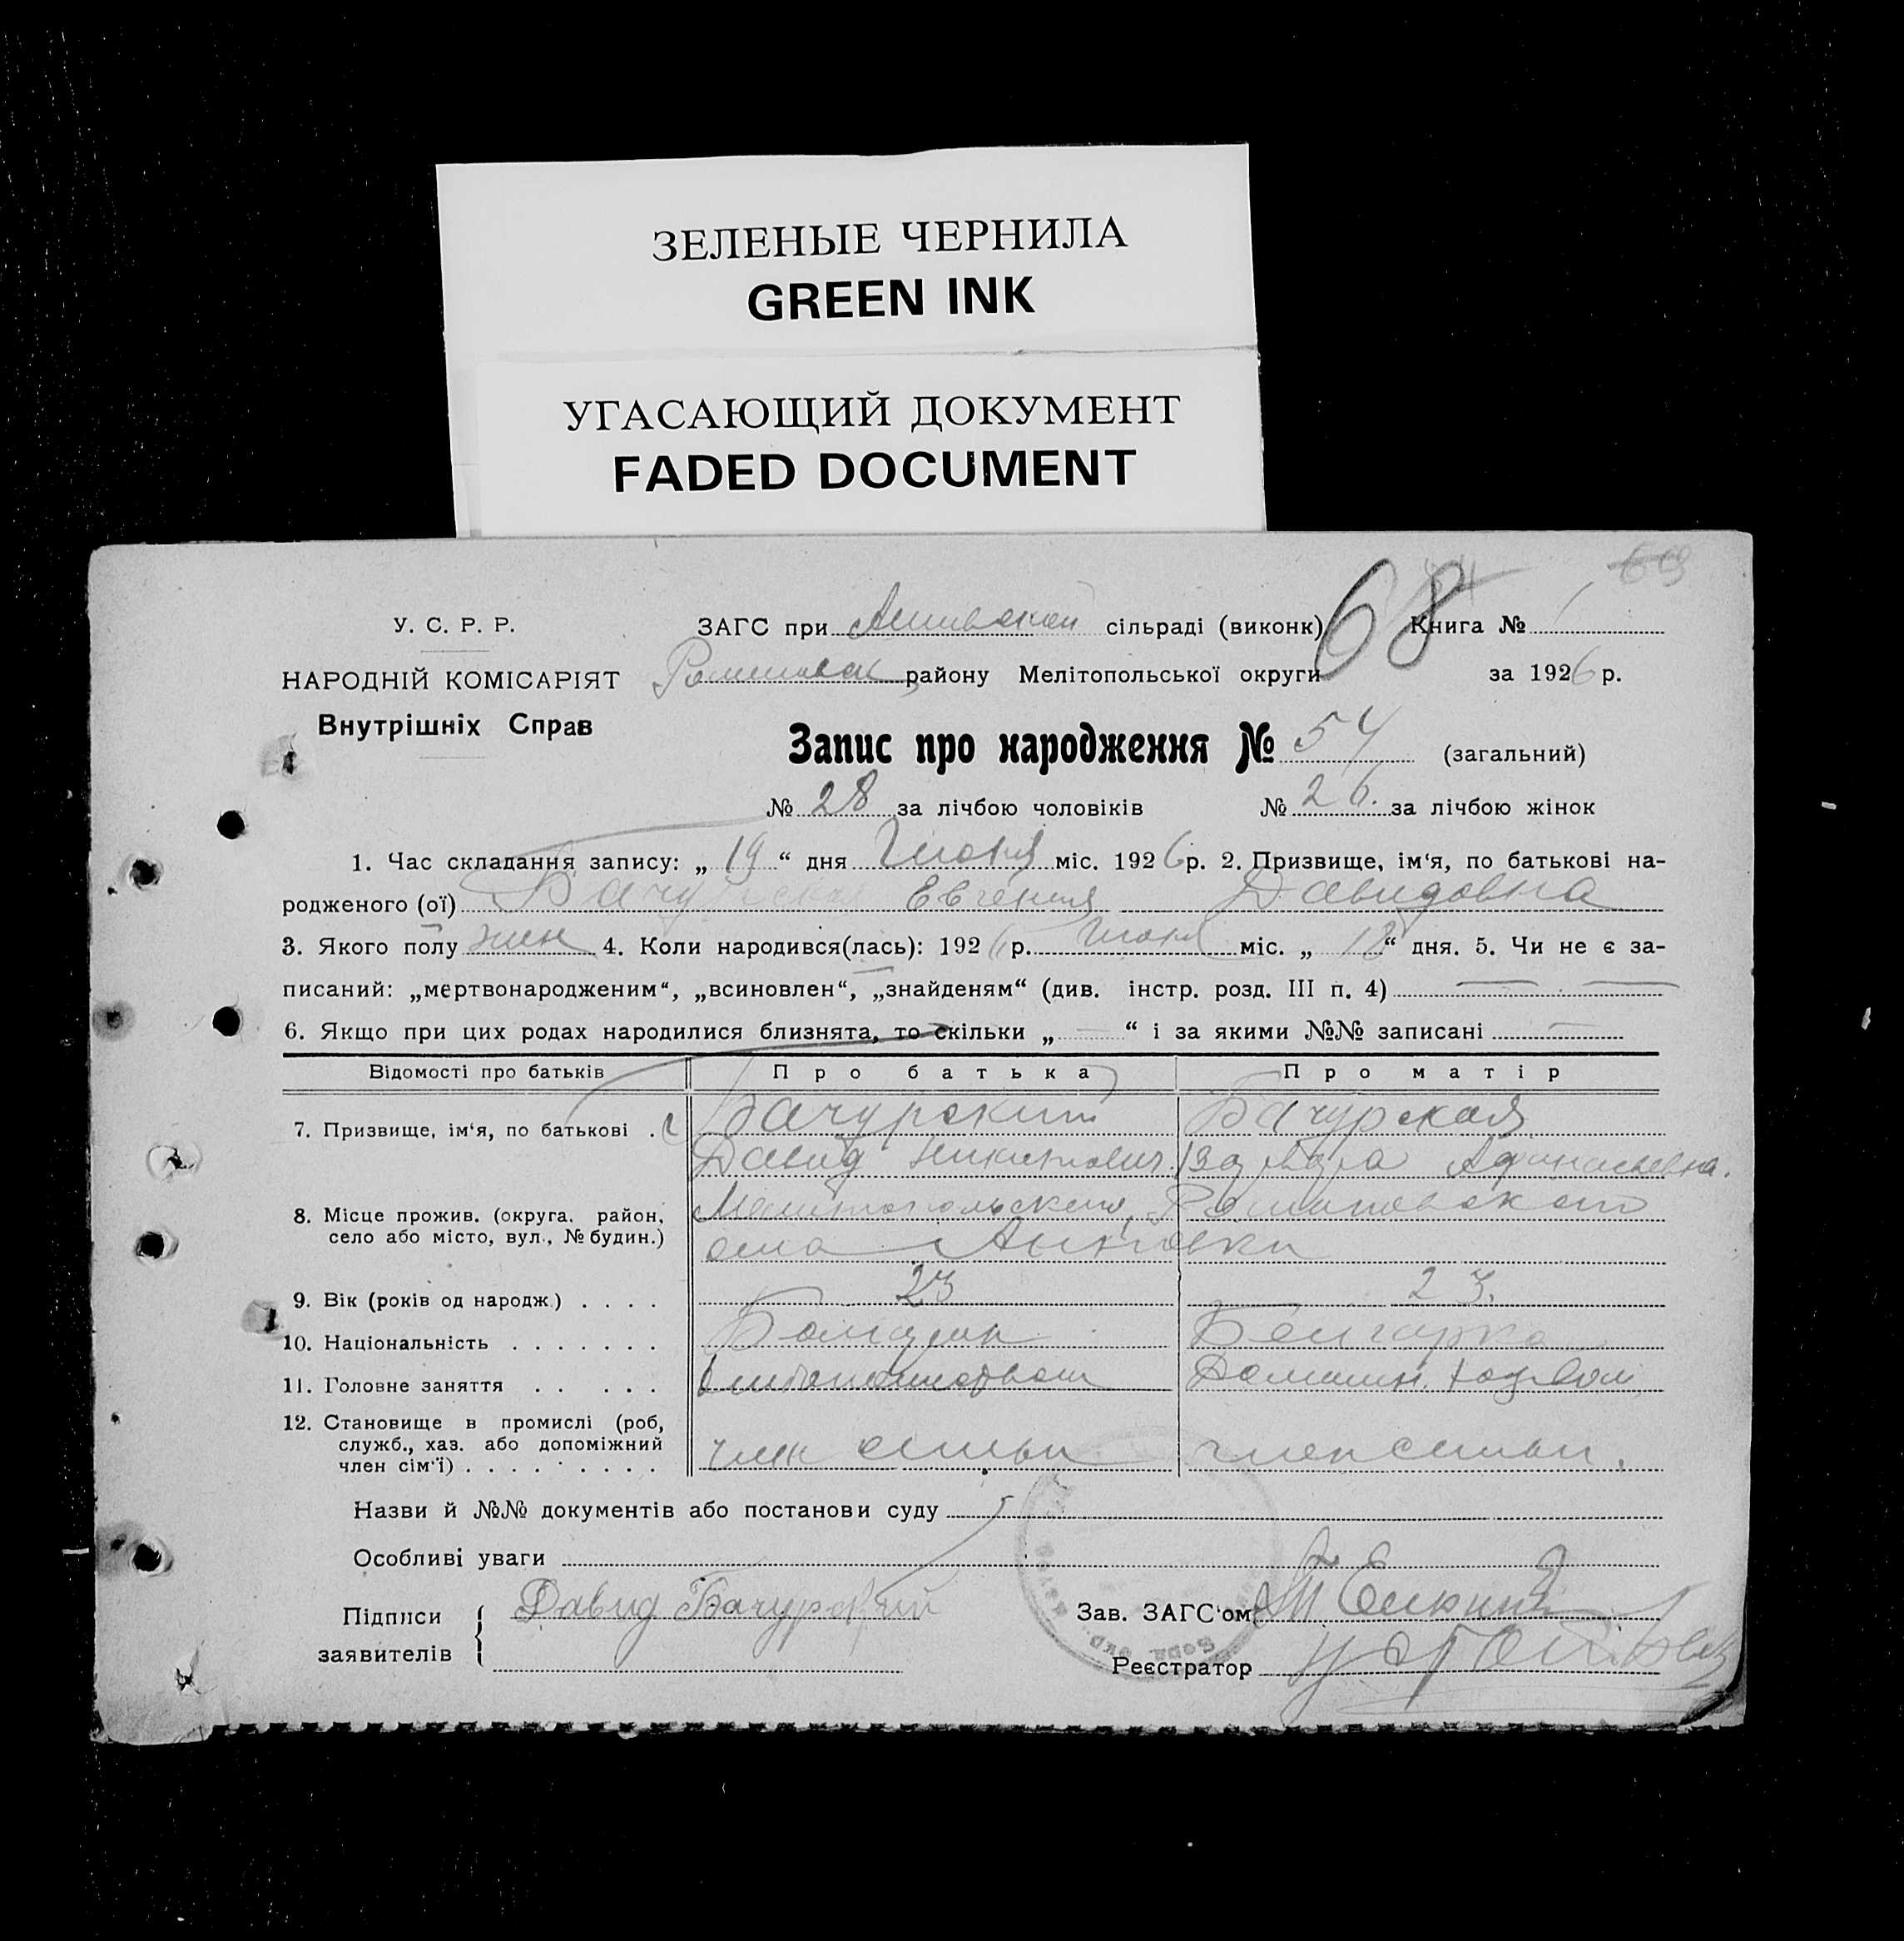 ЗЕЛЕНЫЕ ЧЕРНИЛА
GREEN INK
УГАСАЮЩИЙ ДОКУМЕНТ
FADED DOCUMENT
69
68
У. С. Р. Р.
НАРОДНІЙ КОМІСАРІЯТ
Внутрішніх Справ
ЗАГС при сільраді (виконк) Книга № 1
району Мелітопольської округи за 1926 р.
Запис про народження № 54 (загальний)
№ 28 за лічбою чоловіків № 26. за лічбою жінок
1. Час складання запису: „ 19 “ дня Июня міс. 1926 р. 2. Призвище, ім‘я, по батькові на-
родженого (ої) Бачурская Евгения Давидовна
3. Якого полу жен 4. Коли народився(лась): 1926 р. Июня міс. „ 18 “ дня. 5. Чи не є за-
писаний: „мертвонародженим“, „всиновлен“, „знайденям“ (див. інстр. розд. III п. 4) — —
6. Якщо при цих родах народилися близнята, то скільки „ — “ і за якими №№ записані —
Відомості про батьків Про батька Про матір
7. Призвище, ім‘я, по батькові . Бачурский Бачурская
Давид Никитович. Варвара Афанасьевна.
8. Місце прожив. (округа, район, село або місто, вул., № будин.) Мелитопольского,
села
9. Вік (років од народж.) . . . . 23 23.
10. Національність . . . . . . . Болгарин Болгарка
11. Головне заняття . . . . . Домашн. хозяйств
12. Становище в промислі (роб, служб., хаз. або допоміжний член сім‘ї) . . . . . . . . . член семьи член семьи.
Назви й №№ документів або постанови суду
Особливі уваги
Підписи заявителів { Давид Бачурский
Зав. ЗАГС‘ом
Реєстратор